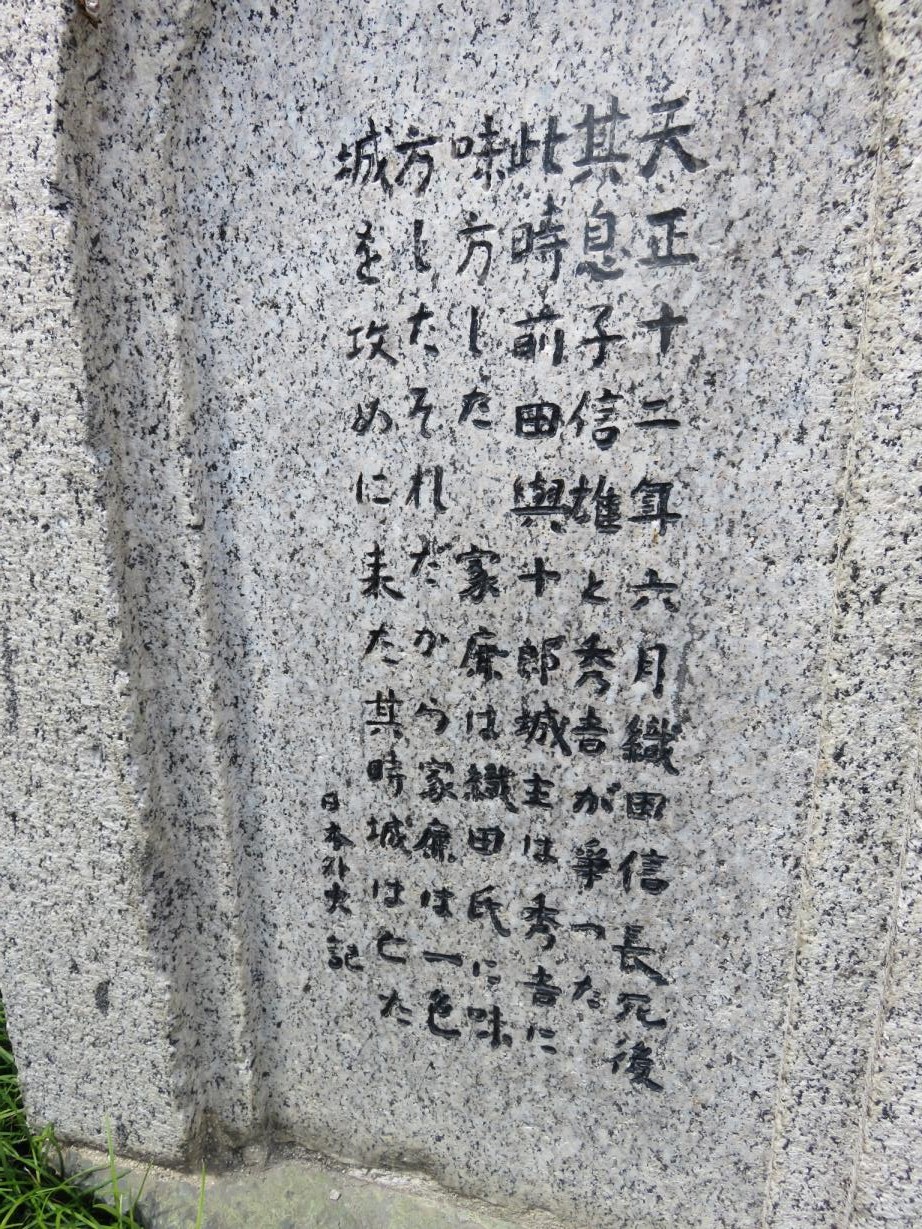 天正十二年六月織田信長死後
其息子信雄と秀吉が爭った
此時前田與十郎城主は秀吉に
味方した 家康は織田氏に味
方したそれだから家康は一色
城を攻めに来た其時城は亡た
日本外史記